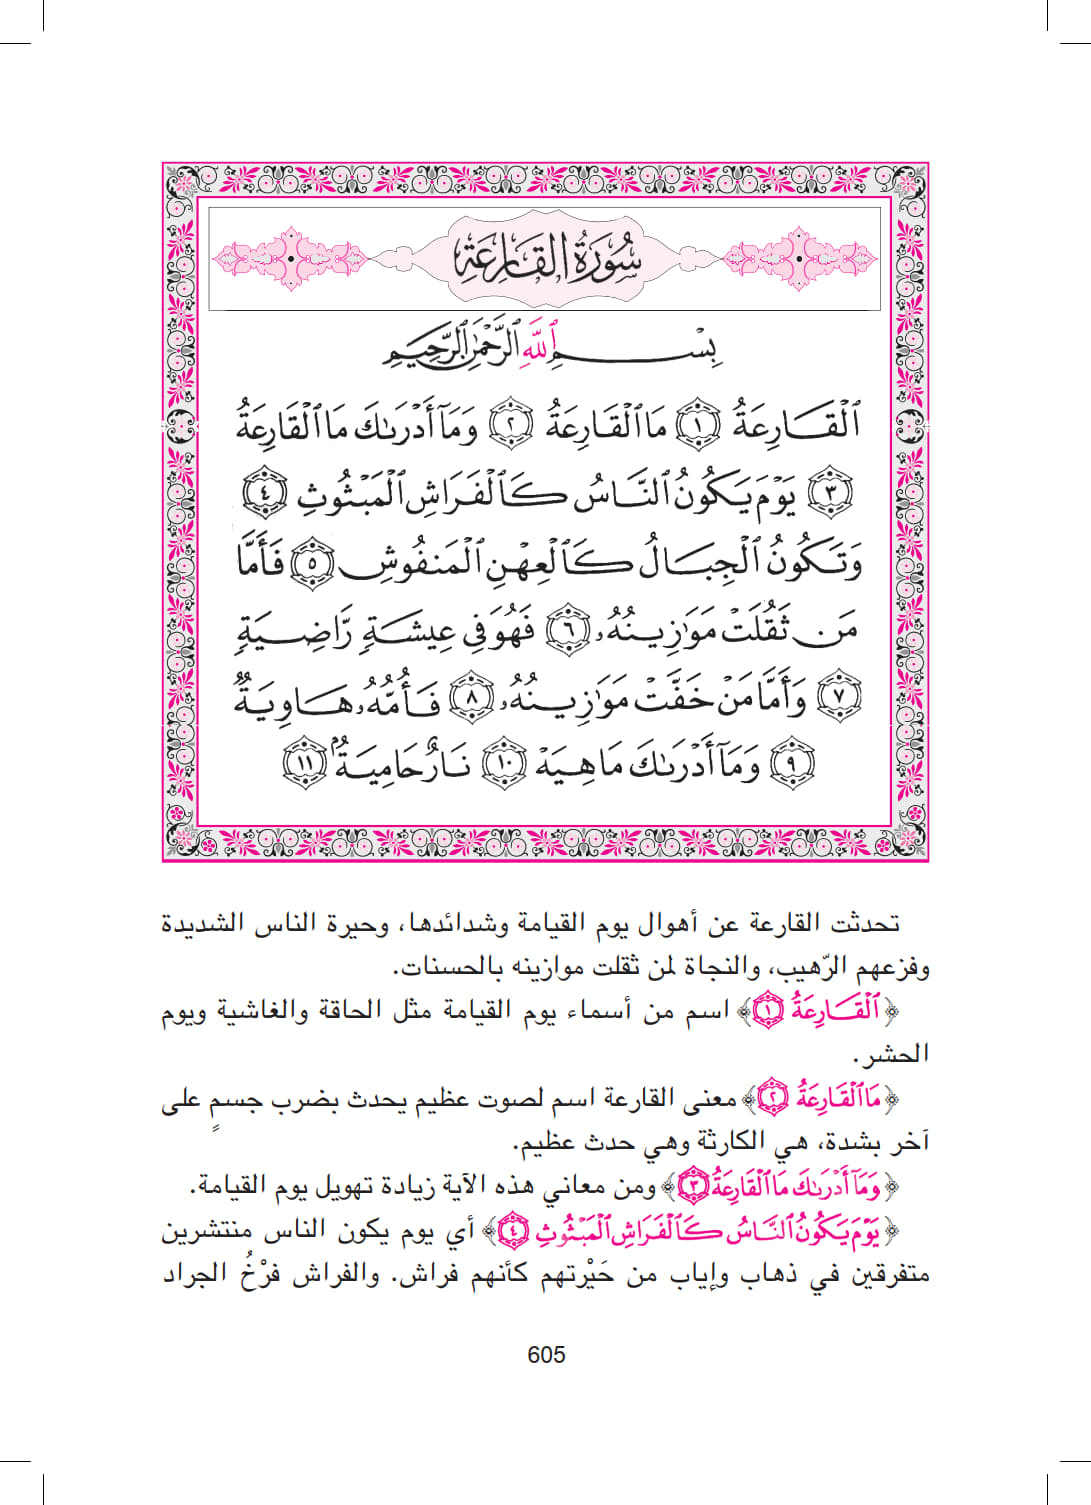 سُورَةُ القَارِعَةِ
بِسْمِ ٱللَّهِ ٱلرَّحْمَٰنِ ٱلرَّحِيمِ
ٱلْقَارِعَةُ ١ مَا ٱلْقَارِعَةُ ٢ وَمَآ أَدْرَىٰكَ مَا ٱلْقَارِعَةُ
٣ يَوْمَ يَكُونُ ٱلنَّاسُ كَٱلْفَرَاشِ ٱلْمَبْثُوثِ ٤
وَتَكُونُ ٱلْجِبَالُ كَٱلْعِهْنِ ٱلْمَنفُوشِ ٥ فَأَمَّا
مَن ثَقُلَتْ مَوَٰزِينُهُۥ ٦ فَهُوَ فِى عِيشَةٍ رَّاضِيَةٍ
٧ وَأَمَّا مَنْ خَفَّتْ مَوَٰزِينُهُۥ ٨ فَأُمُّهُۥ هَاوِيَةٌ
٩ وَمَآ أَدْرَىٰكَ مَا هِيَهْ ١٠ نَارٌ حَامِيَةٌۢ ١١
تحدثت القارعة عن أهوال يوم القيامة وشدائدها، وحيرة الناس الشديدة
وفزعهم الرّهيب، والنجاة لمن ثقلت موازينه بالحسنات.
﴿ٱلْقَارِعَةُ ١﴾ اسم من أسماء يوم القيامة مثل الحاقة والغاشية ويوم
الحشر.
﴿مَا ٱلْقَارِعَةُ ٢﴾ معنى القارعة اسم لصوت عظيم يحدث بضرب جسمٍ على
آخر بشدة، هي الكارثة وهي حدث عظيم.
﴿وَمَآ أَدْرَىٰكَ مَا ٱلْقَارِعَةُ ٣﴾ ومن معاني هذه الآية زيادة تهويل يوم القيامة.
﴿يَوْمَ يَكُونُ ٱلنَّاسُ كَٱلْفَرَاشِ ٱلْمَبْثُوثِ ٤﴾ أي يوم يكون الناس منتشرين
متفرقين في ذهاب وإياب من حَيْرتهم كأنهم فراش. والفراش فرْخُ الجراد
605